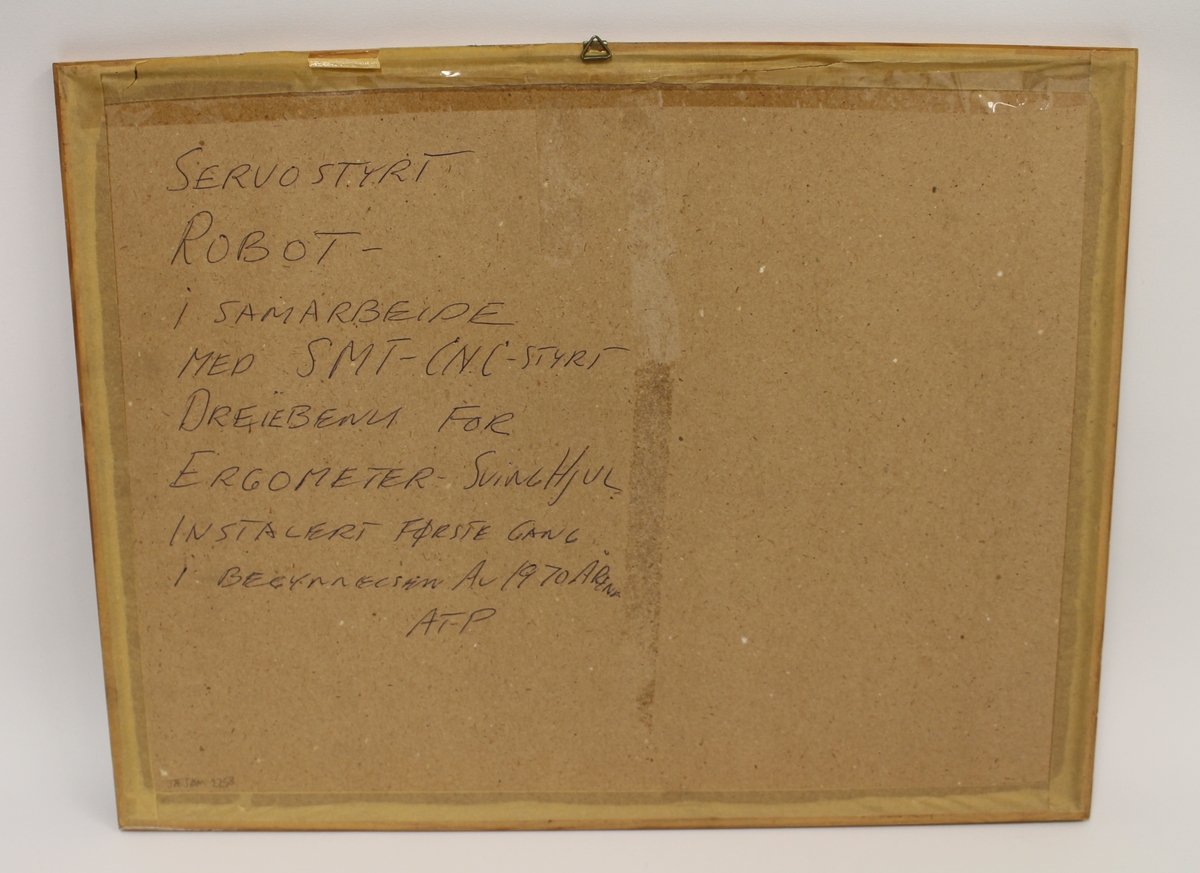 SERVOSTYRT
ROBOT-
I SAMARBEIDE
MED SMT-CNC-STYRT
DREIEBENK FOR
ERGOMETER-SVINGHJUL
INSTALERT FØRSTE GANG
I BEGYNNELSEN AV 1970 ÅRENE
AT-P